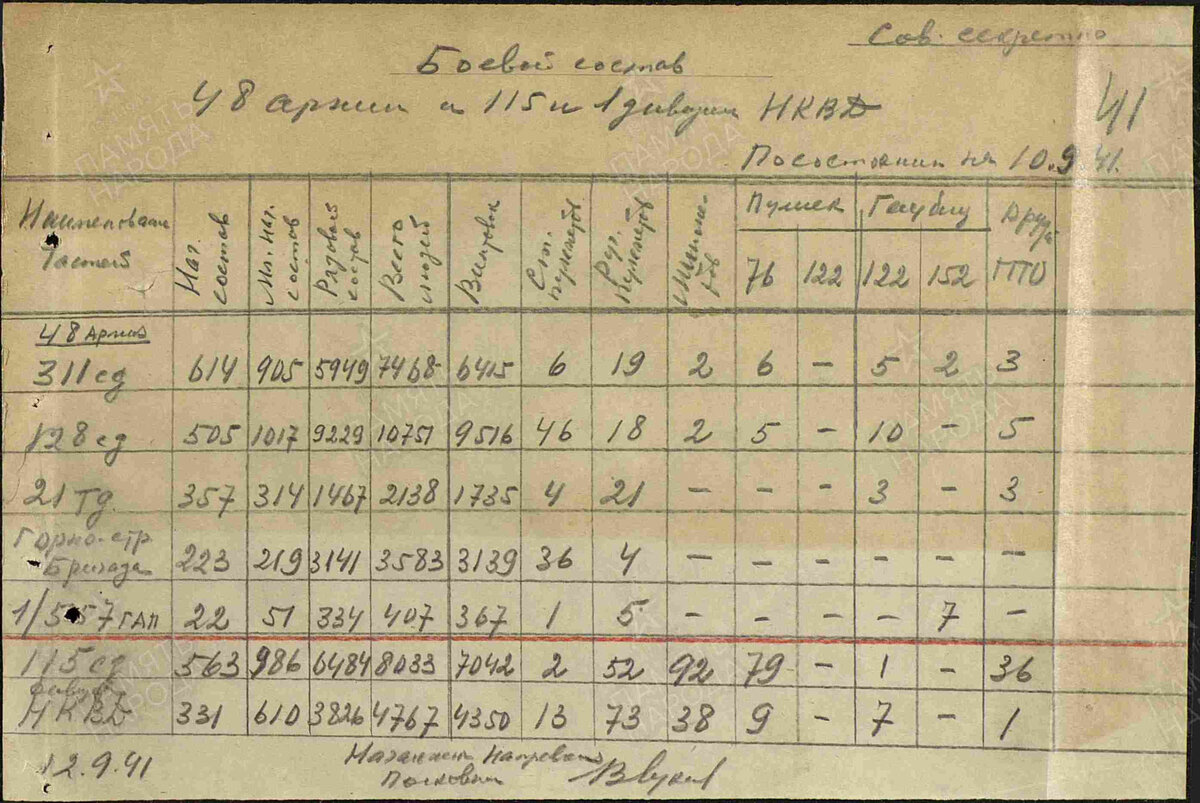 Сов. секретно
Боевой состав
48 армии и 115 и 1 дивизии НКВД
41
По состоянии на 10.9.41.
Наименован частей | Нач. состав | Мл. нач. состав | Рядовой состав | Всего людей | Винтовк | Ст. пулеметов | Руч. пулеметов | Миномётов | Пушек 76 | 122 | Гаубиц 122 | 152 | ПТО
48 Армия
311 сд 614 905 5949 7468 6415 6 19 2 6 – 5 2 3
128 сд 505 1017 9229 10751 9516 46 18 2 5 – 10 – 5
21 тд. 357 314 1467 2138 1735 4 21 – – – 3 – 3
Горно-стр
Бригада 223 219 3141 3583 3139 36 4 – – – – – –
1/557 ГАП 22 51 334 407 367 1 5 – – – – 7 –
115 сд 563 986 6484 8033 7042 2 52 92 79 – 1 – 36
НКВД 331 610 3826 4767 4350 13 73 38 9 – 7 – 1
12.9.41
Полковник
ПАМЯТЬ НАРОДА